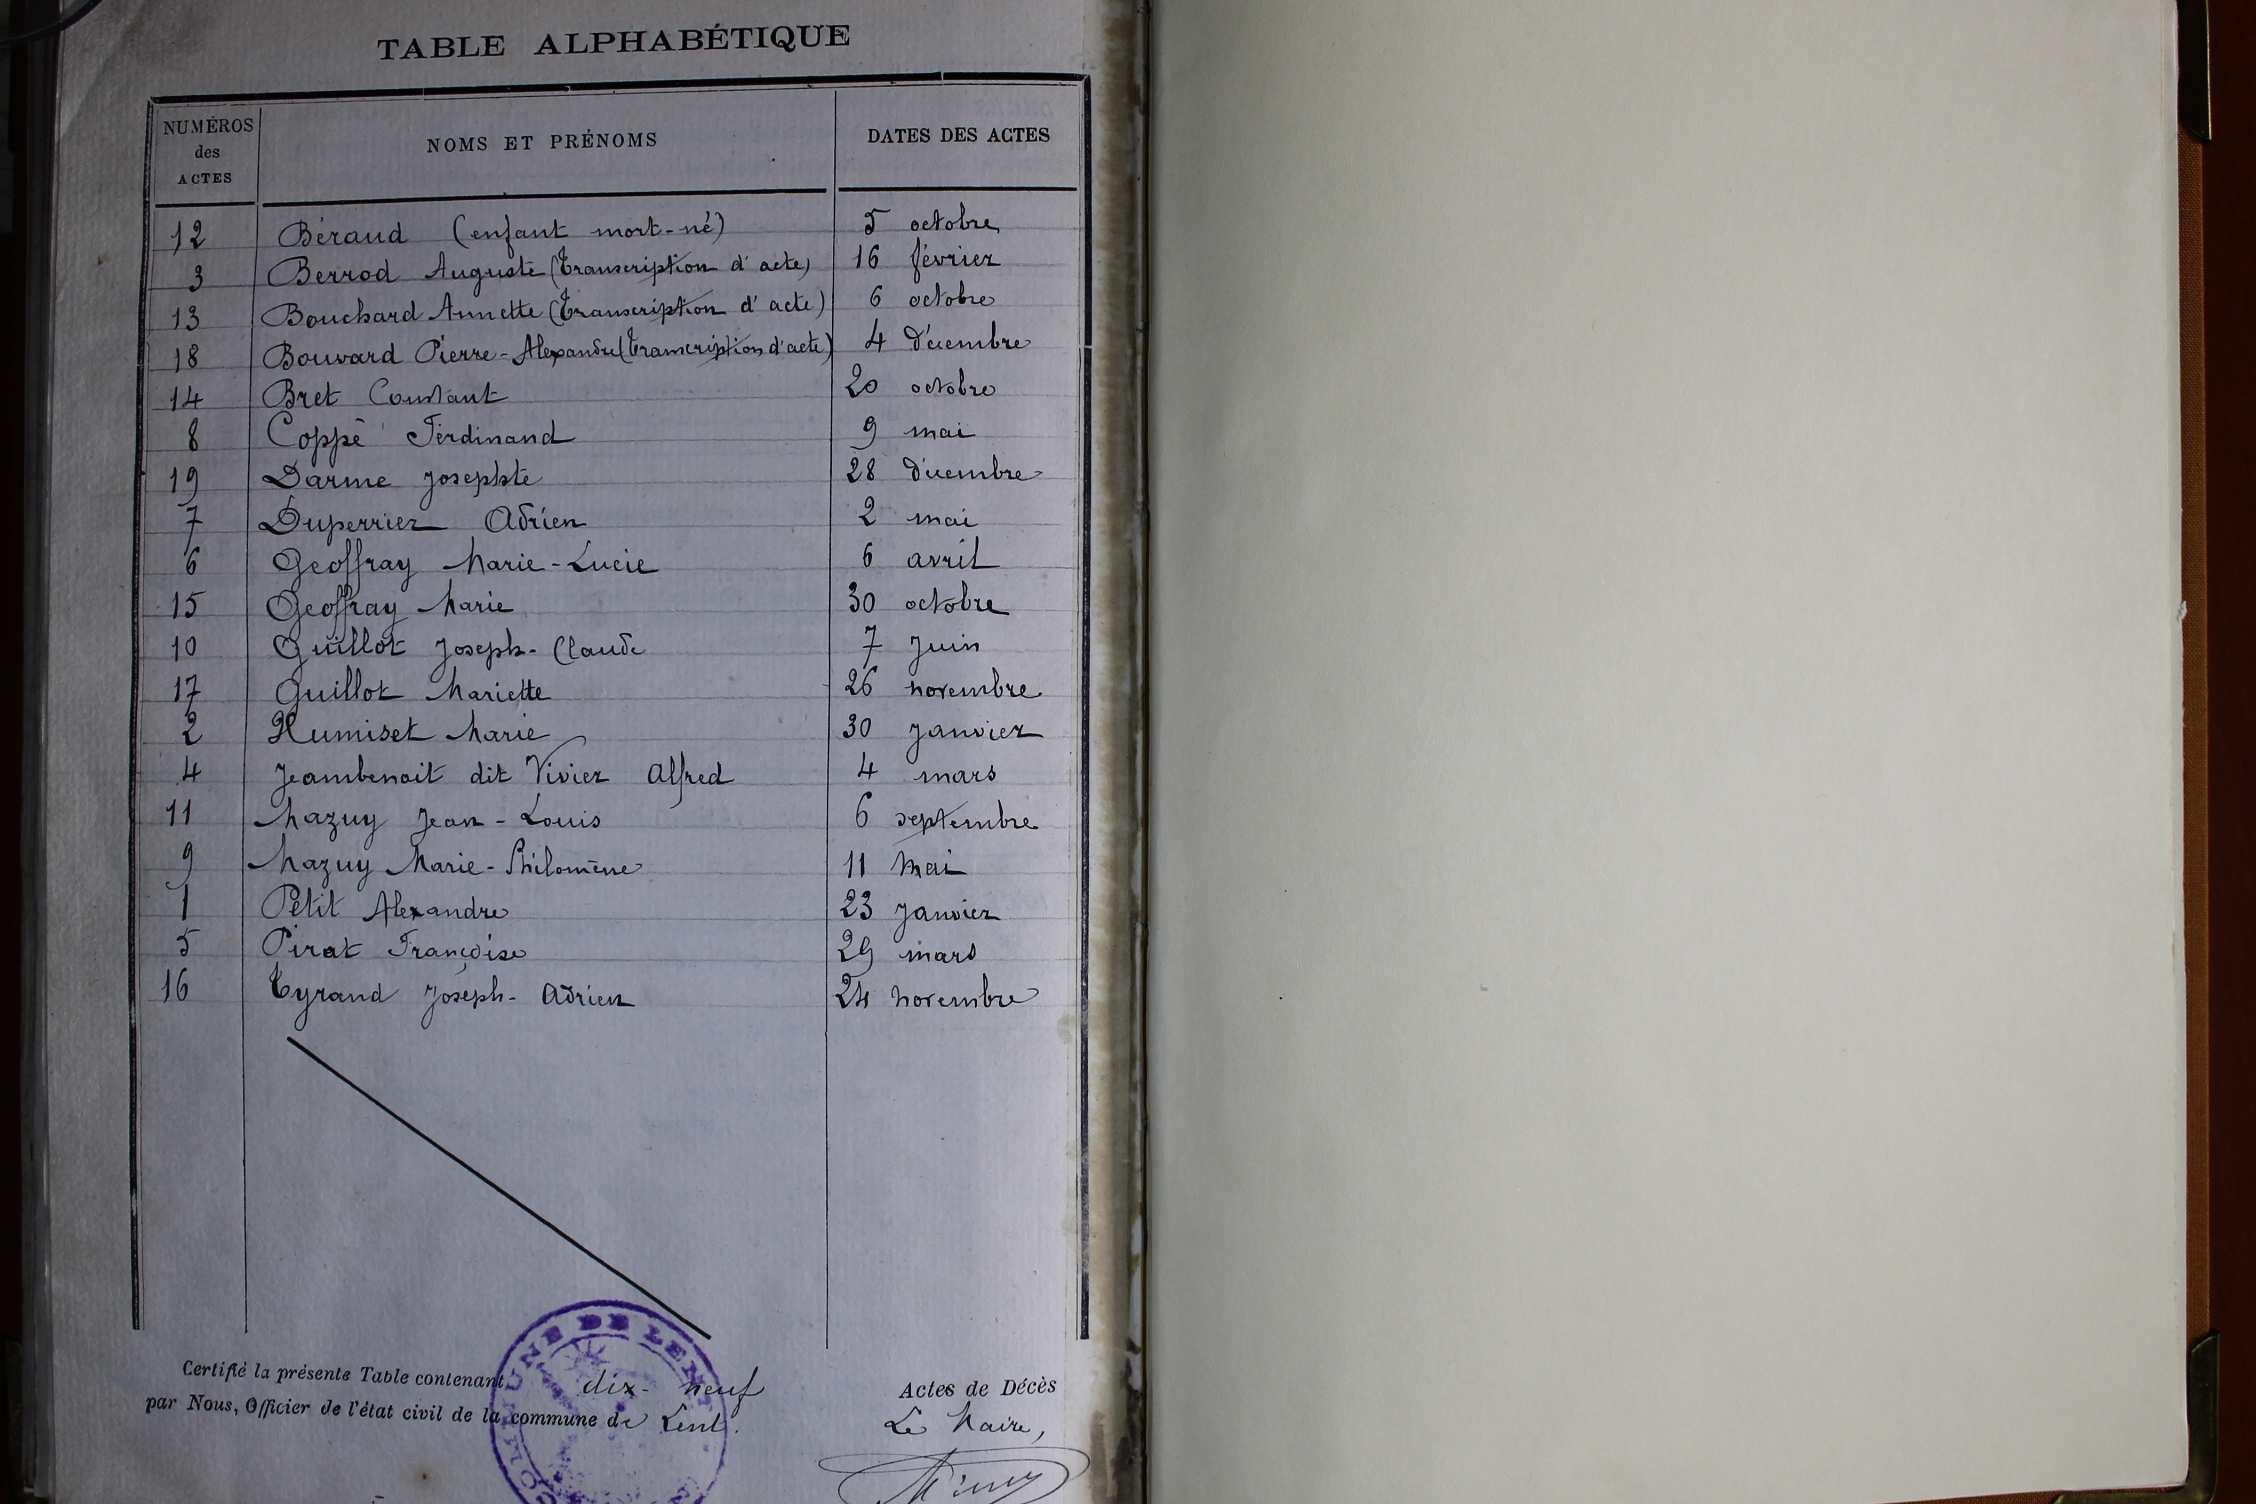 TABLE ALPHABÉTIQUE
NUMÉROS des ACTES NOMS ET PRÉNOMS DATES DES ACTES
12 Béraud (enfant mort-né) 5 octobre
3 Berrod Auguste (Transcription d'acte) 16 février
13 Bouchard Annette (Transcription d'acte) 6 octobre
18 Bouvard Pierre-Alexandre (Transcription d'acte) 4 décembre
14 Bret Constant 20 octobre
8 Coppé Ferdinand 9 mai
19 Darme Josephte 28 décembre
7 Duperrier Adrien 2 mai
6 Geoffray Marie-Lucie 6 avril
15 Geoffray Marie 30 octobre
10 Guillot Joseph-Claude 7 Juin
17 Guillot Mariette 26 novembre
2 Humiset Marie 30 Janvier
4 Jeambenoit dit Vivier Alfred 4 mars
11 Mazuy Jean-Louis 6 septembre
9 Mazuy Marie-Philomène 11 Mai
1 Petit Alexandre 23 Janvier
5 Pirat Françoise 29 mars
16 Tyrand Joseph-Adrien 24 novembre
Certifié la présente Table contenant dix-neuf Actes de Décès
par Nous, Officier de l'état civil de la commune de Lent. Le Maire,
COMMUNE DE LENT